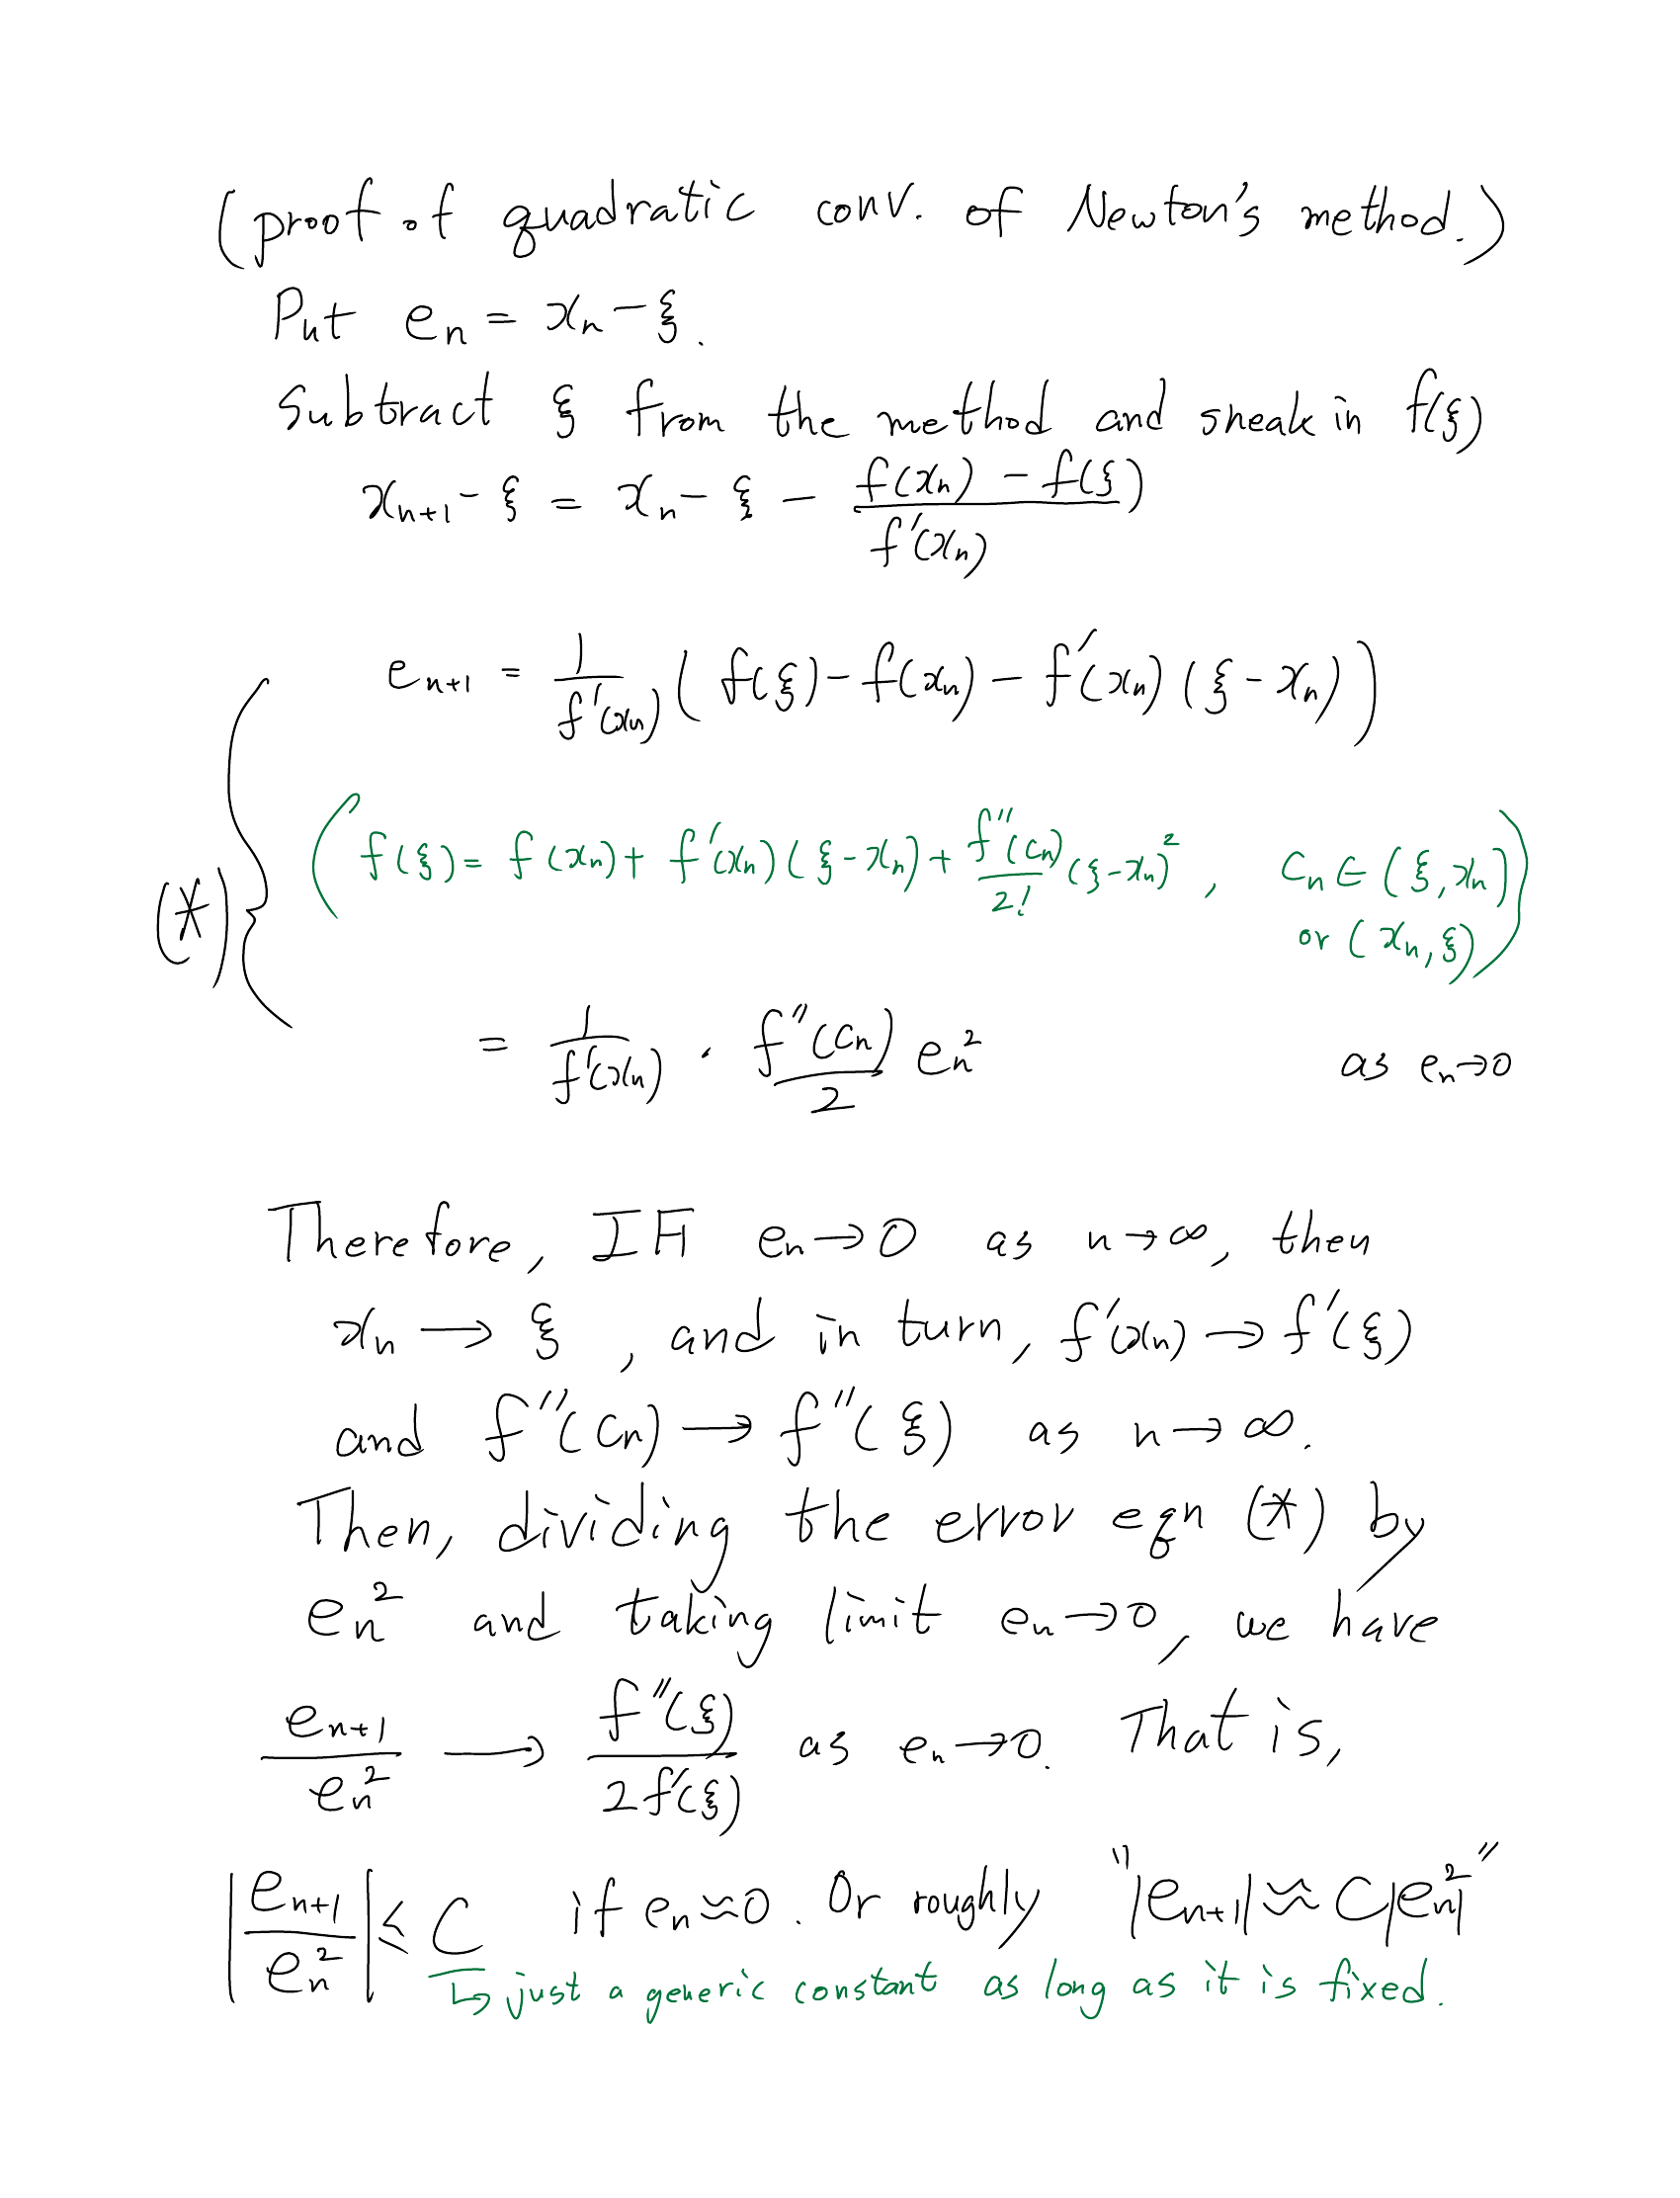 (proof of quadratic conv. of Newton's method.)
Put eₙ = xₙ - ξ.
Subtract ξ from the method and sneak in f(ξ)
xₙ₊₁ - ξ = xₙ - ξ - (f(xₙ) - f(ξ)) / f'(xₙ)
eₙ₊₁ = 1/f'(xₙ) ( f(ξ) - f(xₙ) - f'(xₙ) (ξ - xₙ) )
(*) { ( f(ξ) = f(xₙ) + f'(xₙ)(ξ - xₙ) + f''(cₙ)/2! (ξ - xₙ)², cₙ ∈ (ξ, xₙ)
or (xₙ, ξ) )
= 1/f'(xₙ) · f''(cₙ)/2 eₙ² as eₙ→0
Therefore, IF eₙ→0 as n→∞, then
xₙ → ξ, and in turn, f'(xₙ) → f'(ξ)
and f''(cₙ) → f''(ξ) as n→∞.
Then, dividing the error eqn (*) by
eₙ² and taking limit eₙ→0, we have
eₙ₊₁/eₙ² → f''(ξ)/2f'(ξ) as eₙ→0. That is,
|eₙ₊₁/eₙ²| ≤ C if eₙ≈0. Or roughly "|eₙ₊₁| ≈ C|eₙ²|"
↳ just a generic constant as long as it is fixed.